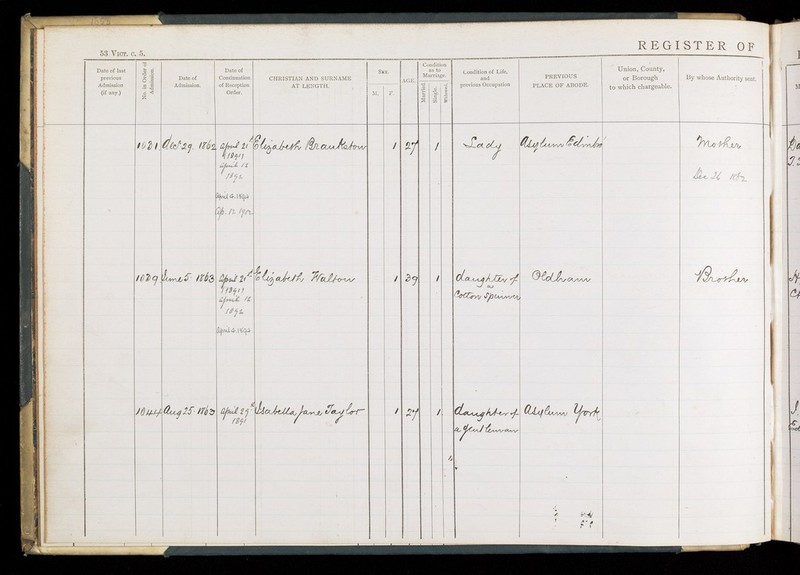 53 VICT. c. 5.
REGISTER OF
Date of last previous Admission (if any.)
No. in Order of Admission.
Date of Admission.
Date of Continuation of Reception Order.
CHRISTIAN AND SURNAME AT LENGTH.
Sex.
M. F.
AGE.
Condition as to Marriage.
Married. Single. Widowed.
Condition of Life, and previous Occupation
PREVIOUS PLACE OF ABODE.
Union, County, or Borough to which chargeable.
By whose Authority sent.
Dec 29. 1862 April 21 Elizabeth 1 27 1 Lady Asylum Mother
1891
April 12
1892
Dec 26 1862
April 12. 1892
Ap. 12 1902
June 5 1863 April 21st Elizabeth Walton 1 39 1 daughter of Oldham Brother
1891
a
April 12 Cotton Spinner
1892
April 12. 1892
1044 Aug 25 1863 April 29th Isabella Jane Taylor 1 27 1 daughter of Asylum York
1891 a gentleman